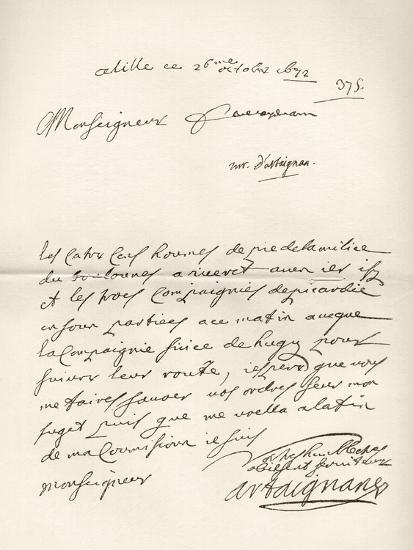 alille ce 26me octobre 1672
375.
Monseigneur
mr. d'artaignan.
les catre cens houmes de pie de la milice
du boulounes ariveret avier ier isy
et les trois Compaignies de picardie
en soun parties ace matin avecque
la Compaignie suice de hugy pour
suivre leur route, iespere que vous
me faires savoer vos ordres seur mon
suget puis que me voella a la fin
de ma Coumision ie suis
monseigneur
artaignan